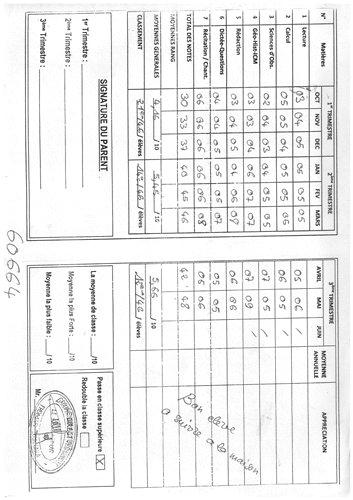 N° Matières 1er TRIMESTRE 2ème TRIMESTRE 3ème TRIMESTRE MOYENNE ANNUELLE APPRECIATION
OCT NOV DEC JAN FEV MARS AVRIL MAI JUIN
1 Lecture 03 04 05 05 05 05 05 06 /
2 Calcul 05 05 05 05 05 06 05
3 Sciences d'Obs. 02 04 03 04 05 05 07 05 /
4 Géo-Hist-ICM 03 03 04 06 07 07 07 09 /
5 Rédaction 03 04 05 04 06 07 06 06
6 Dictée-Questions 04 04 05 05 05 07 05 05
7 Récitation / Chant. 06 06 06 06 08 06 06
TOTAL DES NOTES 30 33 33 40 45 46 42 48
MOYENNES RANG
MOYENNES GENERALES 4,16 /10 5,45 5,66 /10
CLASSEMENT /46 élèves /46 élèves /46
Bon élève
a suivre à la maison
SIGNATURE DU PARENT
1er Trimestre :
2ème Trimestre :
3ème Trimestre :
La moyenne de classe : /10
Moyenne la plus Forte :
Moyenne la plus faible : /10
Passe en classe supérieure X
Redouble la classe
Mr.
60664